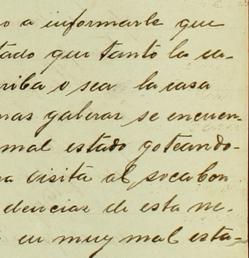 o a informarle que
stado que tanto la ca-
rriba o sea la casa
mas galeras se encuen-
mal estado goteando-
na visita al socabon
dencias de esta mi-
en muy mal esta-